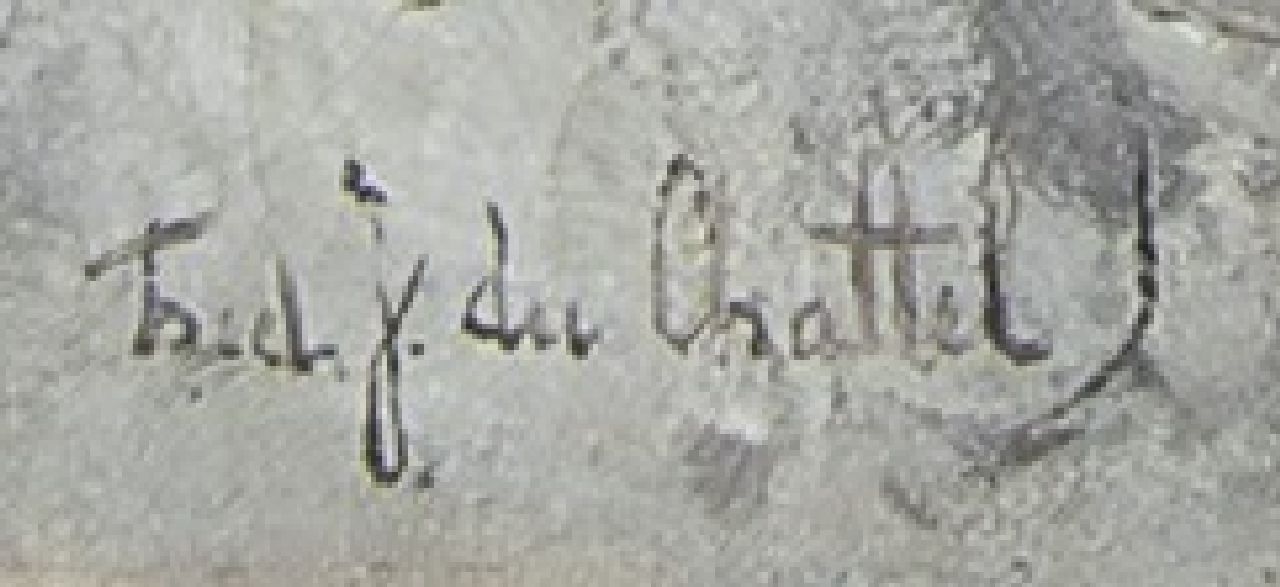 Fred. J. du Chattel